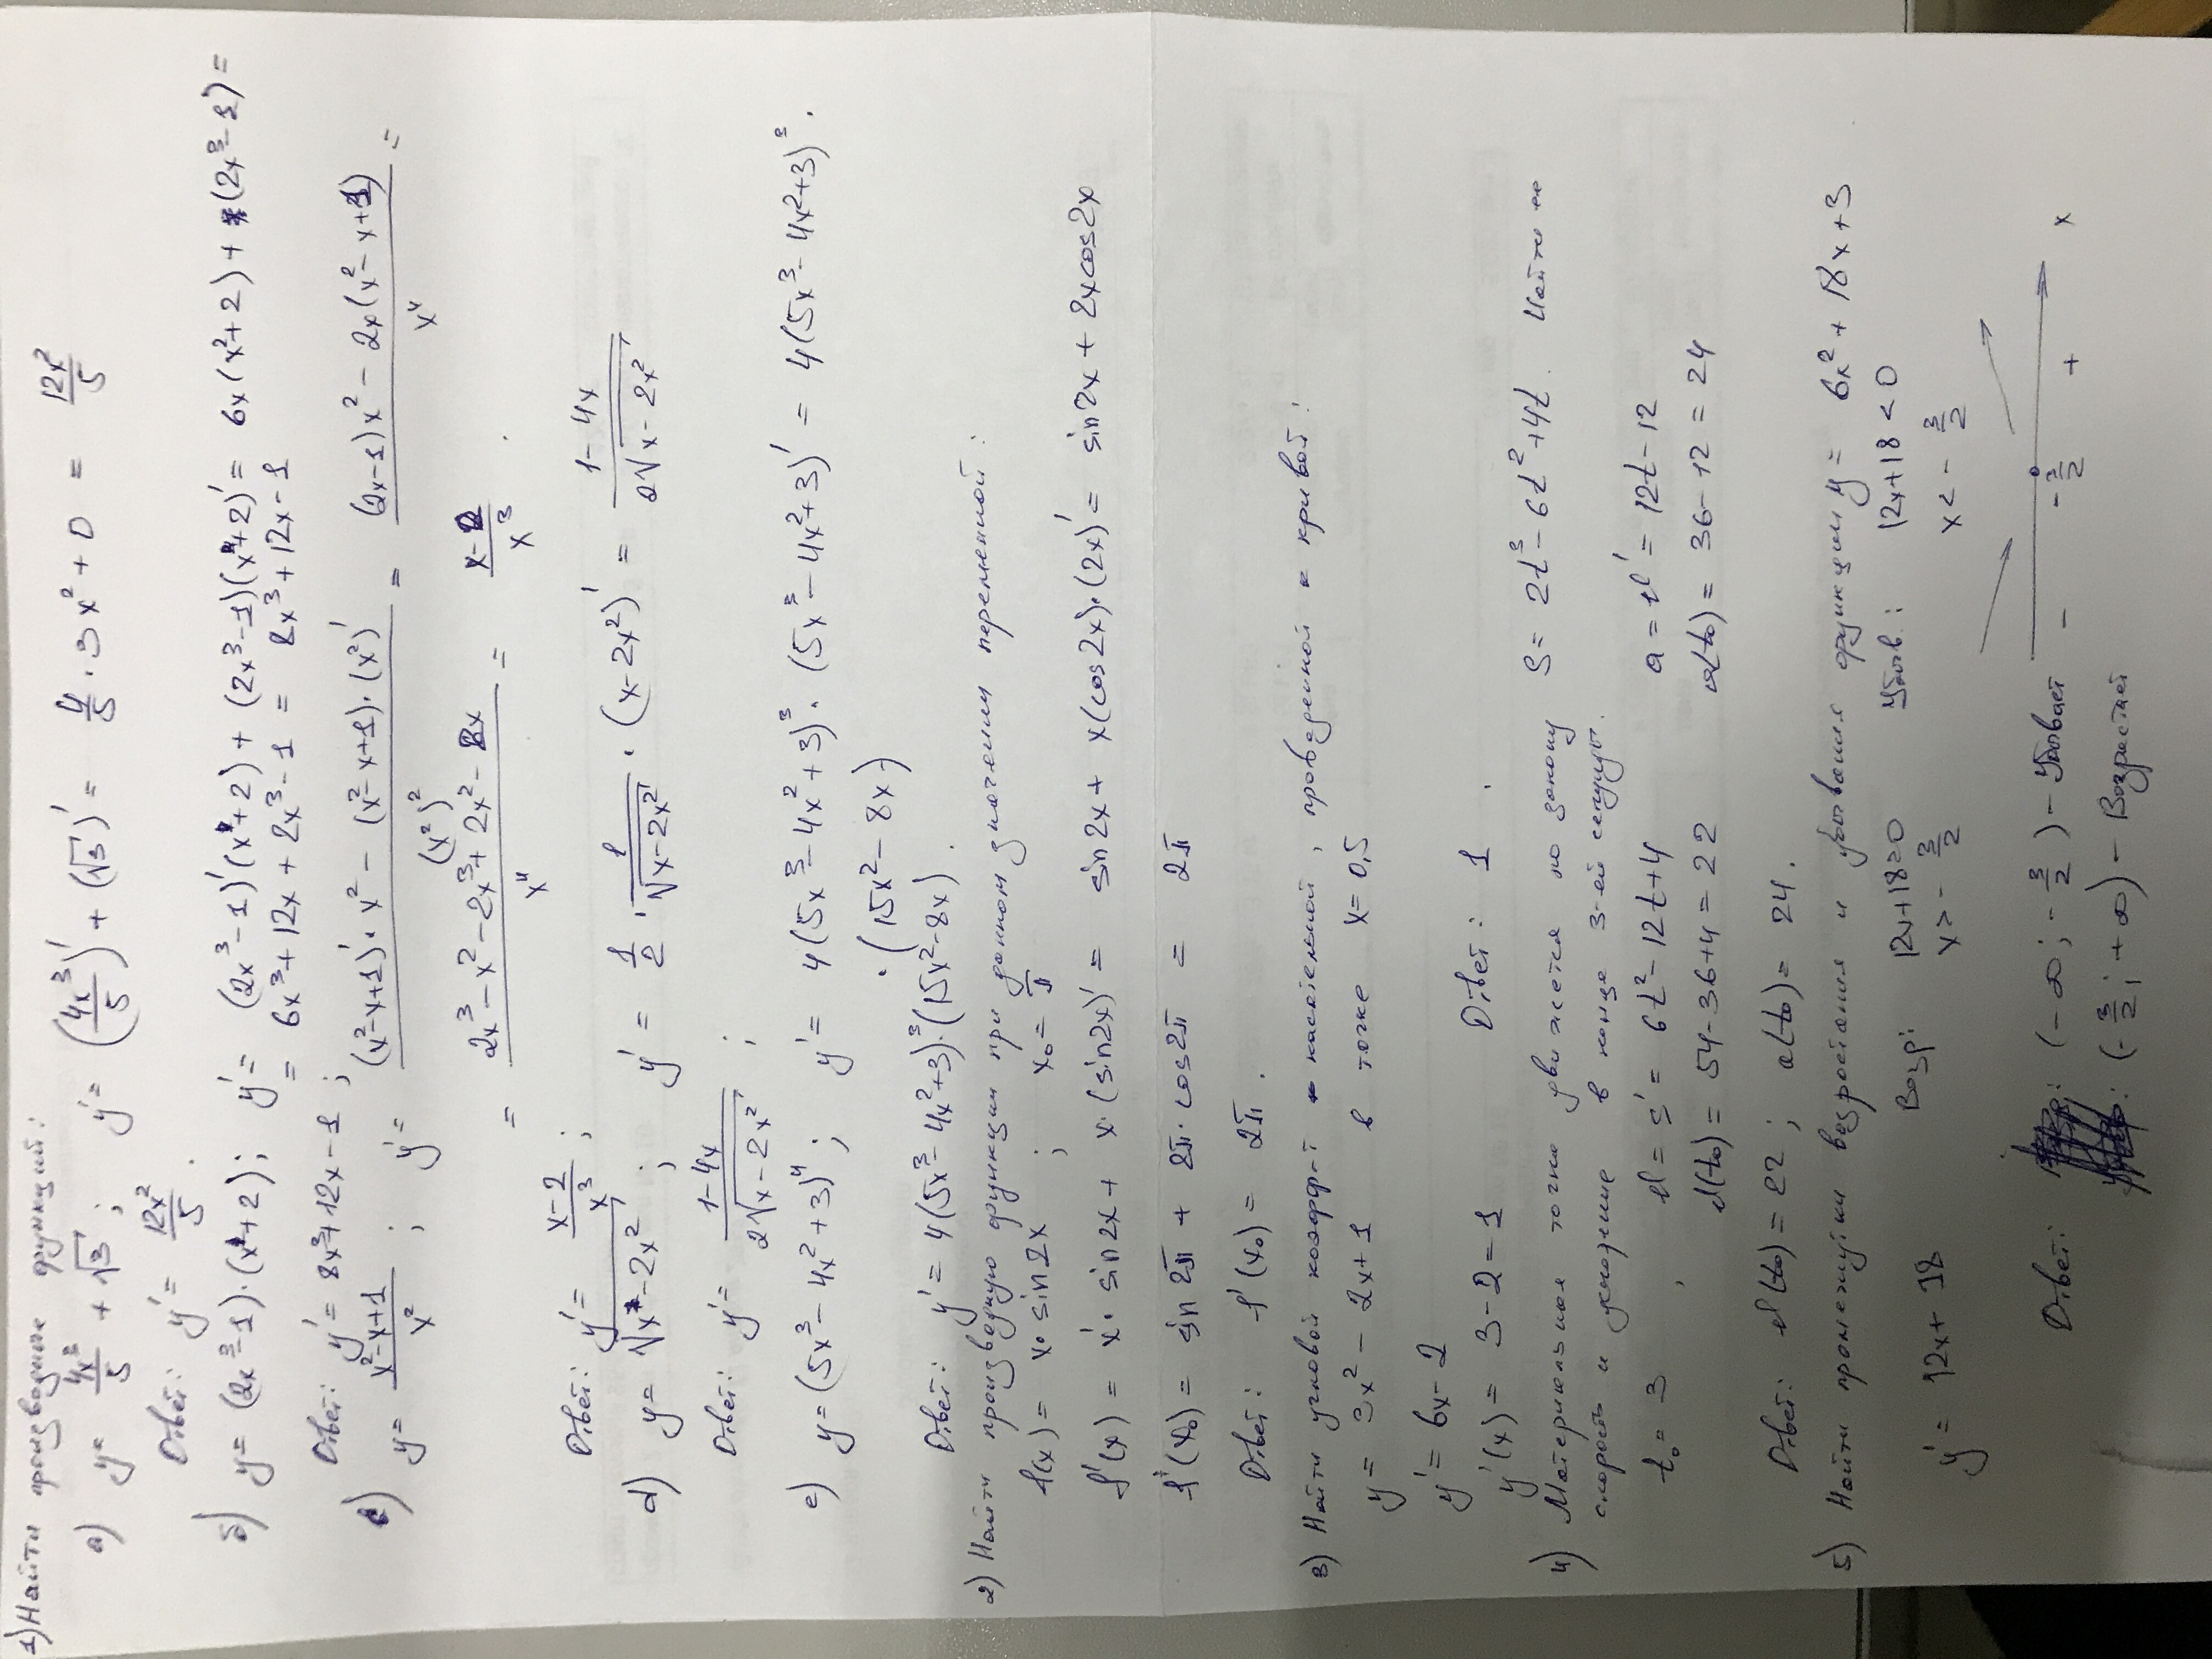 1) Найти производные функций:
а) y = 4x³/5 + √3; y' = (4x³/5)' + (√3)' = 4/5 · 3x² + 0 = 12x²/5
Ответ: y' = 12x²/5.
б) y = (2x³-1)·(x+2); y' = (2x³-1)'(x+2) + (2x³-1)(x+2)' = 6x(x²+2) + (2x³-1) =
= 6x³+12x + 2x³-1 = 8x³+12x-1
Ответ: y' = 8x³+12x-1;
в) y = x²-x+1/x²; y' = (x²-x+1)'·x² - (x²-x+1)·(x²)'/(x²)² = (2x-1)x² - 2x(x²-x+1)/x⁴ =
= 2x³-x²-2x³+2x²-2x/x⁴ = x-2/x³.
Ответ: y' = x-2/x³;
d) y = √x-2x²; y' = 1/2 · 1/√x-2x² · (x-2x²)' = 1-4x/2√x-2x²
Ответ: y' = 1-4x/2√x-2x²;
e) y = (5x³-4x²+3)⁴; y' = 4(5x³-4x²+3)³·(5x³-4x²+3)' = 4(5x³-4x²+3)³·
·(15x²-8x)
Ответ: y' = 4(5x³-4x²+3)³·(15x²-8x).
2) Найти производную функции при данном значении переменной:
f(x) = x·sin2x; x₀ = π
f'(x) = x'·sin2x + x·(sin2x)' = sin2x + x(cos2x)·(2x)' = sin2x + 2xcos2x
f'(x₀) = sin2π + 2π·cos2π = 2π
Ответ: f'(x₀) = 2π.
3) Найти угловой коэффт касательной, проведенной к кривой:
y = 3x² - 2x+1 в точке x=0,5
y' = 6x-2
y'(x) = 3-2=1 Ответ: 1.
4) Материальная точка движется по закону S = 2t³-6t²+4t. Найти ее
скорость и ускорение в конце 3-ей секунды.
t₀ = 3; v = s' = 6t²-12t+4 a = v' = 12t-12
v(t₀) = 54-36+4 = 22 a(t₀) = 36-12 = 24
Ответ: v(t₀) = 22; a(t₀) = 24.
5) Найти промежутки возрастания и убывания функции y = 6x²+18x+3
y' = 12x+18 Возр: 12x+18>0 Убыв.: 12x+18<0
x > -3/2 x < -3/2
- -3/2 + x
Ответ: (-∞; -3/2) - Убывает
(-3/2; +∞) - Возрастает